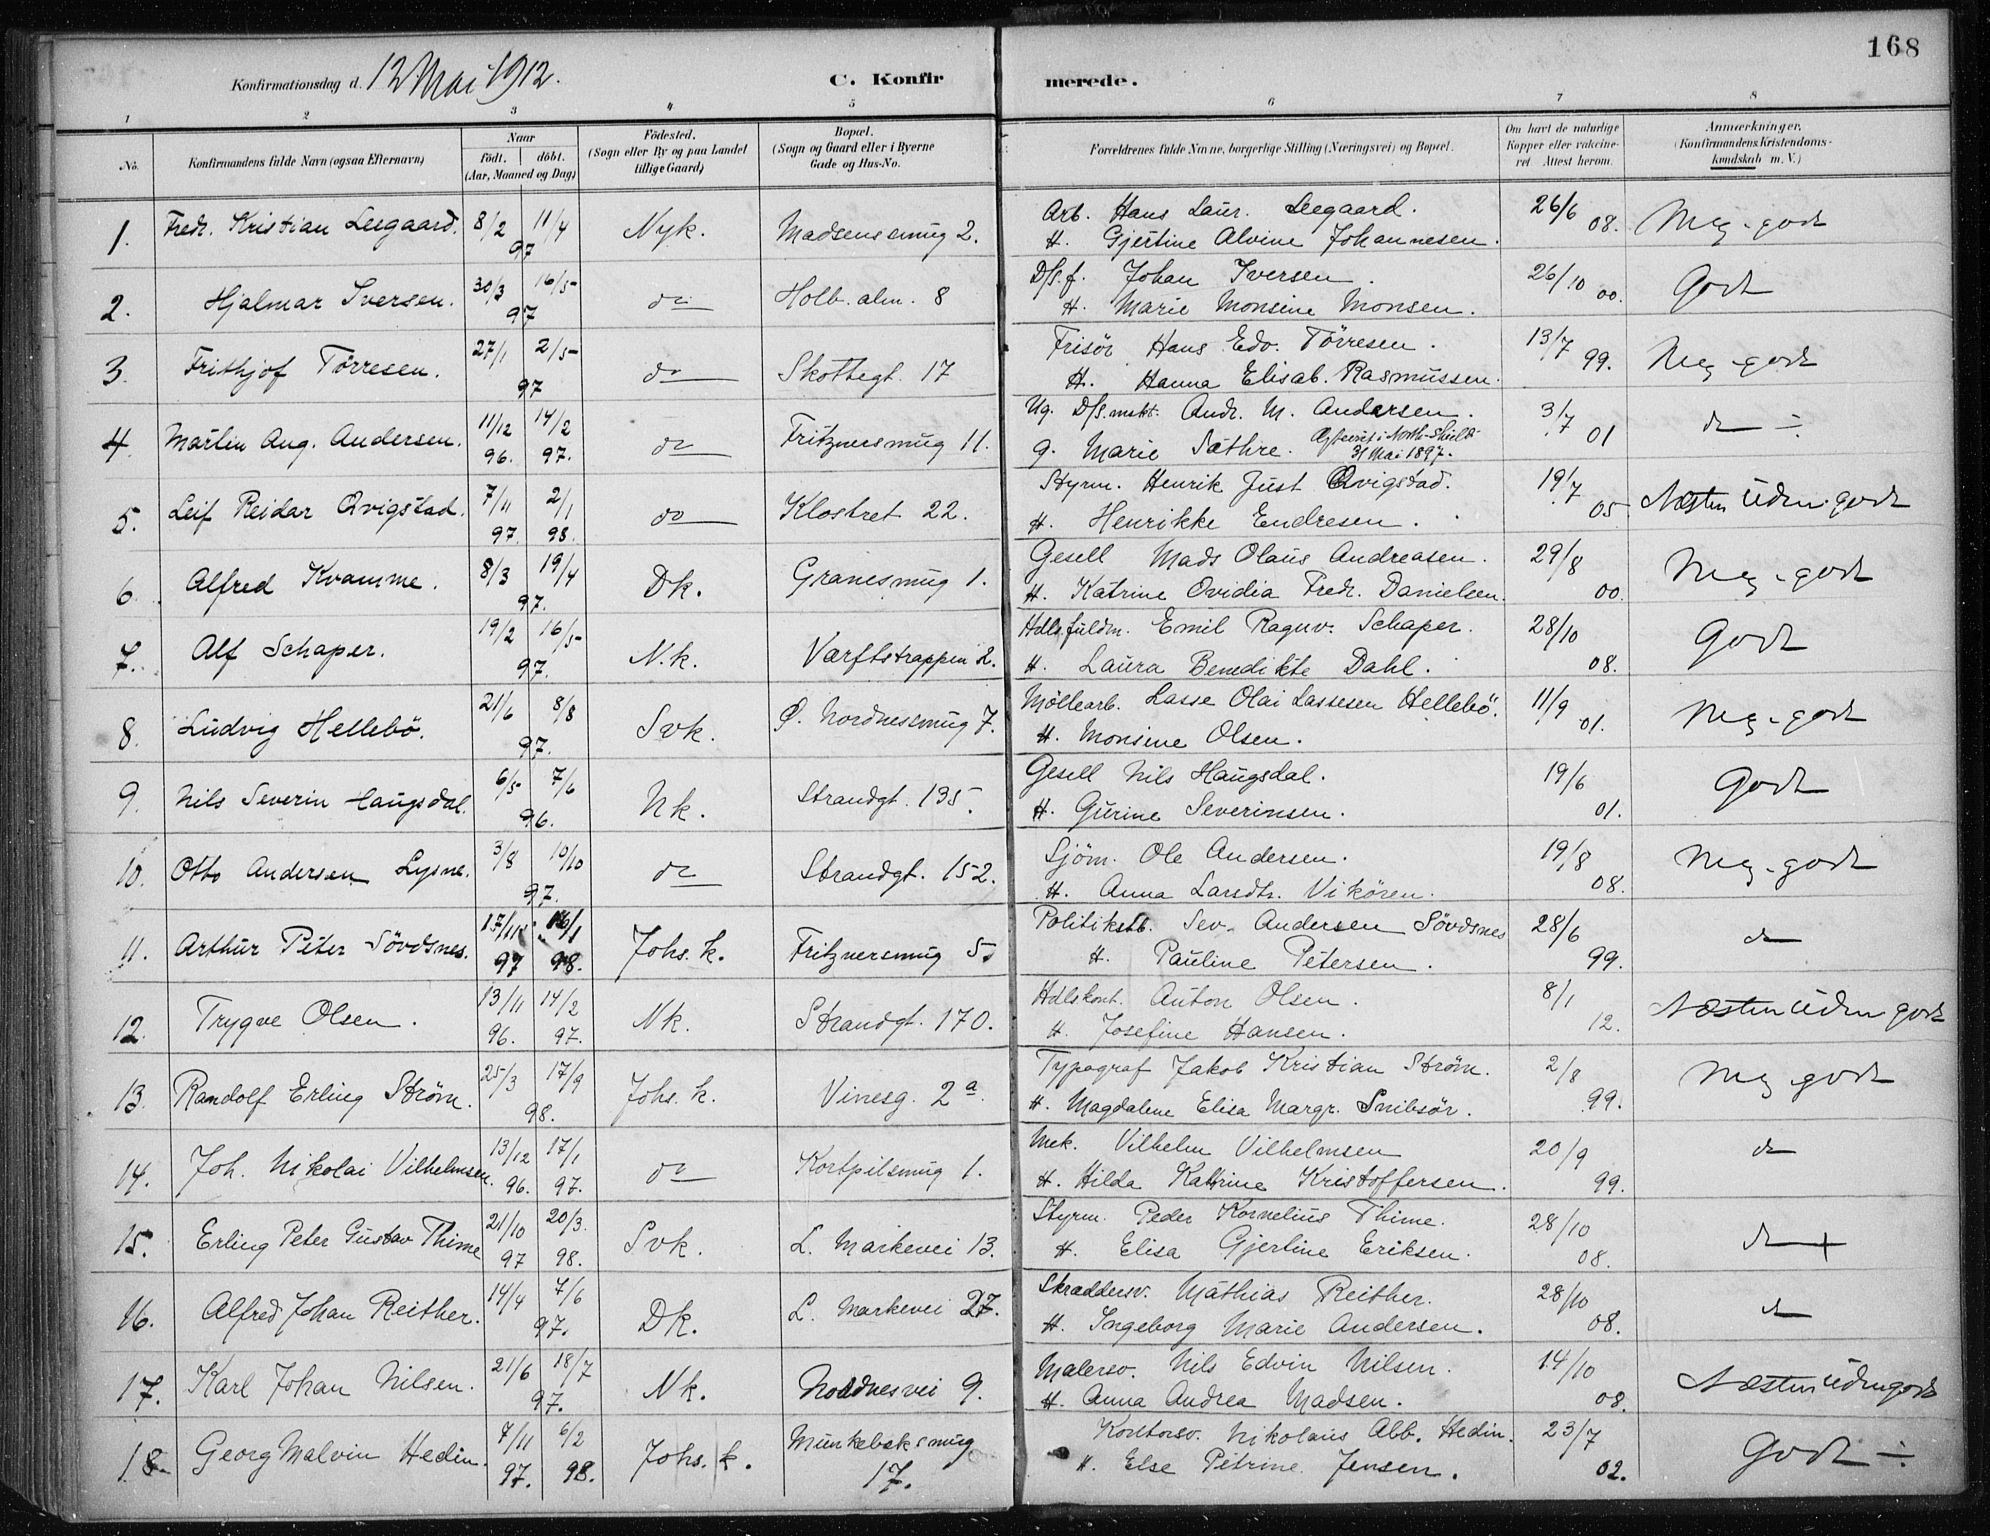 168
Konfirmationsdag d. 12 Mai 1912. C. Konfirmerede.
1 2 3 4 5 6 7 8
No. Konfirmandens fulde Navn (ogsaa Efternavn) Naar født. døbt. (Aar, Maaned og Dag) Fødested. (Sogn eller By og paa Landet tillige Gaard) Bopæl. (Sogn og Gaard eller i Byerne Gade og Hus-No. Forældrenes fulde Navne, borgerlige Stilling (Næringsvei) og Bopæl. Om havt de naturlige Kopper eller vaccineret. Attest herom. Anmærkninger. (Konfirmandens Kristendomskundskab m. V.)
1. Fredr. Kristian Leegaard. 8/2 11/4 97 Nyk. Madsensmug 2. Arb. Hans Laur. Leegaard. 26/6 08. Meg. godt
H. Gjertine Alvine Johannesen.
2. Hjalmar Iversen. 30/3 16/5 97 do Holb. alm. 8 D/s.f. Johan Iversen. 26/10 00. Godt
H. Marie Monsine Monsen.
3. Frithjof Tørresen. 27/1 2/5 97 do Skottegt. 17 Frisør Hans Edv. Tørresen. 13/7 99. Meg. godt
H. Hanna Elisab. Rasmussen.
4. Martin Aug. Andersen. 11/12 96. 14/2 97. do Fritznersmug 11. Ug. D/s.mskt. Andr. M. Andersen. 3/7 01 do ÷
g. Marie Sathre. i North-Shields 31 Mai 1897.
5. Leif Reidar Qvigstad. 7/11 97. 2/1 98. do Klostret 22. Styrm. Henrik Just Qvigstad. 19/7 05 Næsten Uden. godt
H. Henrikke Endresen.
6. Alfred Kvamme. 8/3 19/4 97. Dk. Granesmug 1. Gesell Mads Olaus Andreasen. 29/8 00. Meg. godt
H. Katrine Ovidia Fredr. Danielsen.
7. Alf Schaper. 19/2 16/5 97. N.k. Varftstrappen 2. Hdls.fuldm. Emil Ragnv. Schaper. 28/10 08. Godt
H. Laura Benedikte Dahl.
8. Ludvig Hellebö. 21/6 8/8 97. Svk. Ø. Nordnesmug 7. Møllearb. Lasse Olai Lassesen Hellebö. 11/9 01. Meg. godt
H. Monsine Olsen.
9. Nils Severin Haugsdal. 6/5 7/6 96. Nk. Strandgt. 135. Gesell Nils Haugsdal. 19/6 01. Godt
H. Gurine Severinsen.
10. Otto Andersen Lysne. 3/8 10/10 97. do Strandgt. 152. Sjöm. Ole Andersen. 19/8 08. Meg. godt
H. Anna Larsdtr. Vikören.
11. Arthur Peter Sövdsnes. 17/11 97 16/1 98. Johs. k. Fritznersmug 5. Politikstb. Sev. Andersen Sövdsnes 28/6 99. do
H. Pauline Petersen.
12. Trygve Olsen. 13/11 96. 14/2 97. Nk. Strandgt. 170. Hdlskont. Anton Olsen. 8/1 12. Næsten Uden godt
H. Josefine Hansen.
13. Randolf Erling Strøm. 25/3 17/9 98. Johs. k. Vinesg. 2a. Typograf Jakob Kristian Strøm. 2/8 99. Meg godt
H. Magdalene Elisa Margr. Snibsör.
14. Joh. Nikolai Vilhelmsen. 13/12 96. 17/1 97. do Kortpilsmug 1. Mek. Vilhelm Vilhelmsen 20/9 99. do
H. Hilda Katrine Kristoffersen.
15. Erling Peter Gustav Thime 21/10 97 20/3. 98. Svk. L. Markevei 13. Styrm. Peder Kornelius Thime. 28/10 08. do +
H. Elisa Gjertine Eriksen.
16. Alfred Johan Reither. 14/4 7/6 97. Dk. L. Markevei 27. Skraddersv. Mathias Reither. 28/10 08. do
H. Ingeborg Marie Andersen.
17. Karl Johan Nilsen. 21/6 18/7 97. Nk. Nordnesvei 9. Malersv. Nils Edvin Nilsen. 14/10 08. Næsten Uden godt
H. Anna Andrea Madsen.
18. Georg Malvin Hedin. 7/11 97. 6/2 98. Johs. k. Munkebeksmug 17. Kontorsv. Nikolaus Abb. Hedin. 23/7 02. Godt ÷
H. Else Petrine Jensen.